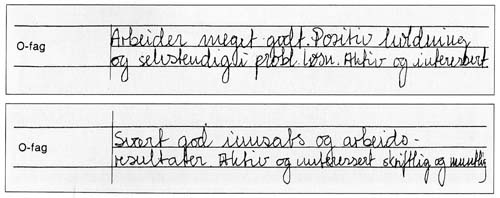 Arbeider meget godt. Positiv holdning
O-fag
og selvstendig i probl.løsn. Aktiv og interessert.
Svært god innsats og arbeids-
O-fag
resultater. Aktiv og interessert skriftlig og muntlig